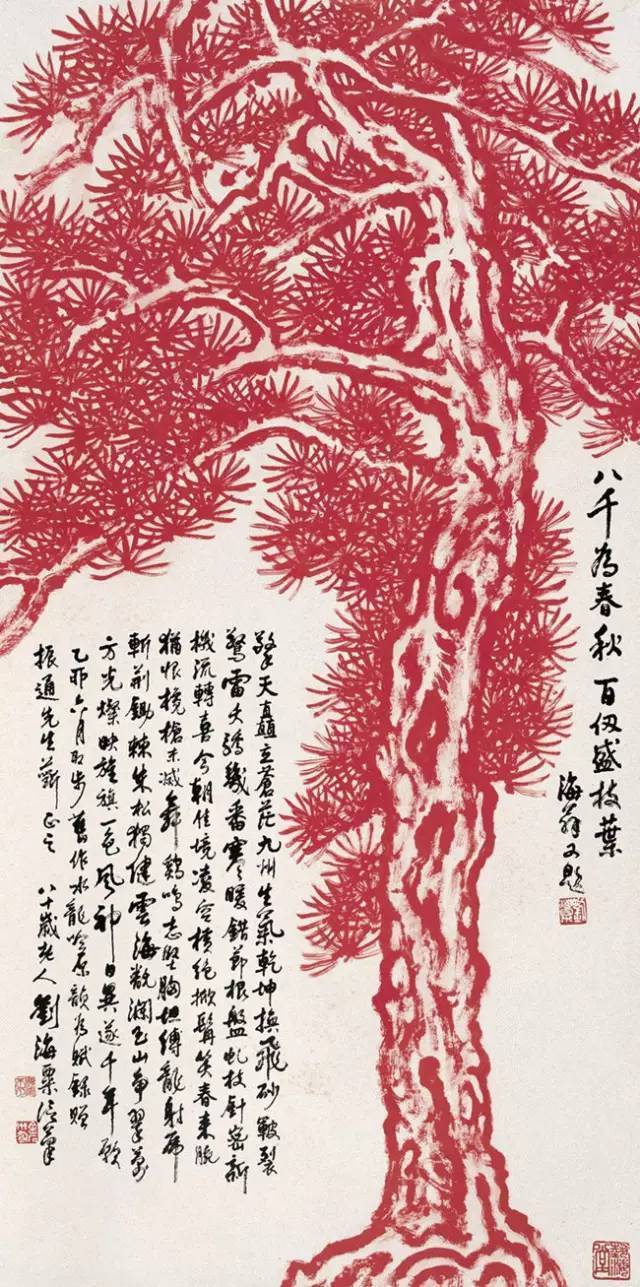 八千為春秋百仞盛枝葉
海翁又題
擎天矗立蒼茫九州生氣乾坤換飛砂皸裂
驚雷火幾番寒暖錯節根盤虬枝針密新
機流轉喜今朝佳境凌空橫絕掀髯笑春來腕
猶恨攙槍未滅舞鷄鳴志堅胸坦縛龍射虎
斬荆鋤棘朱松獨健雲海翻瀾玉山爭翠萬
方光燦映旌旗一色風神日異遂千年願
乙卯六月步舊作水龍吟原韻為賦錄贈
振通先生蘄正之 八十歲老人劉海粟信筆